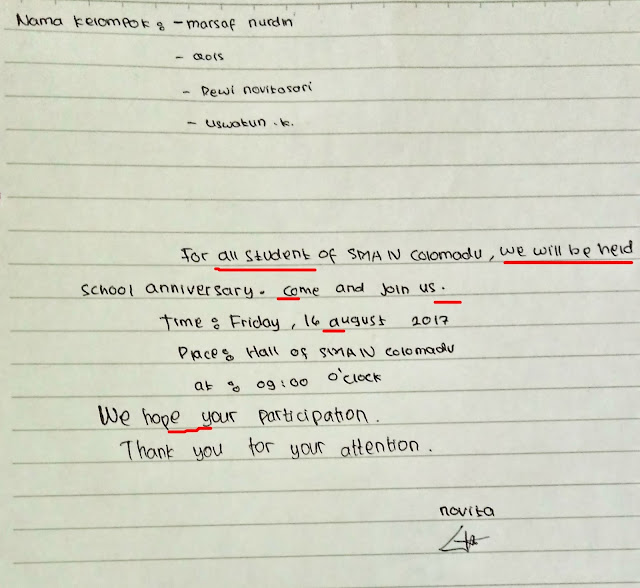 Nama kelompok : - marsaf nurdin
- aois
- Dewi novitasari
- uswatun .k.
For all student of SMA N colomadu, we will be held
school anniversary. come and join us.
Time : Friday, 16 august 2017
Place : Hall of SMA N colomadu
at : 09:00 o'clock
We hope your participation.
Thank you for your attention.
novita